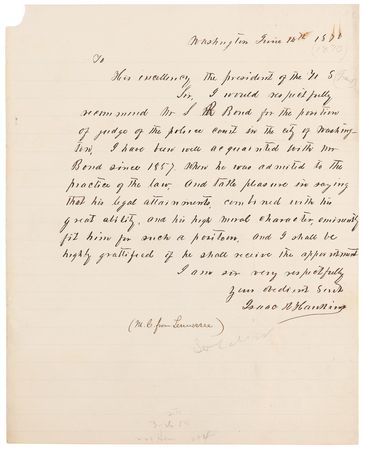 Washington June 14th 1870
(1870)
To
His excellency the president of the U S
Sir, I would respectfully
recommend Mr S R Bond for the position
of judge of the police court in the city of Washing-
ton, I have been well acquainted with Mr
Bond since 1857 When he was admitted to the
practice of the law, And take pleasure in saying
that his legal attainments, combined with his
great ability, and his high moral character, eminently
fit him for such a position, and I shall be
highly gratified if he shall receive the appointment
I am sir very respectfully
Your obedient Servt
Isaac R Hawkins
(M.C. from Tennessee)